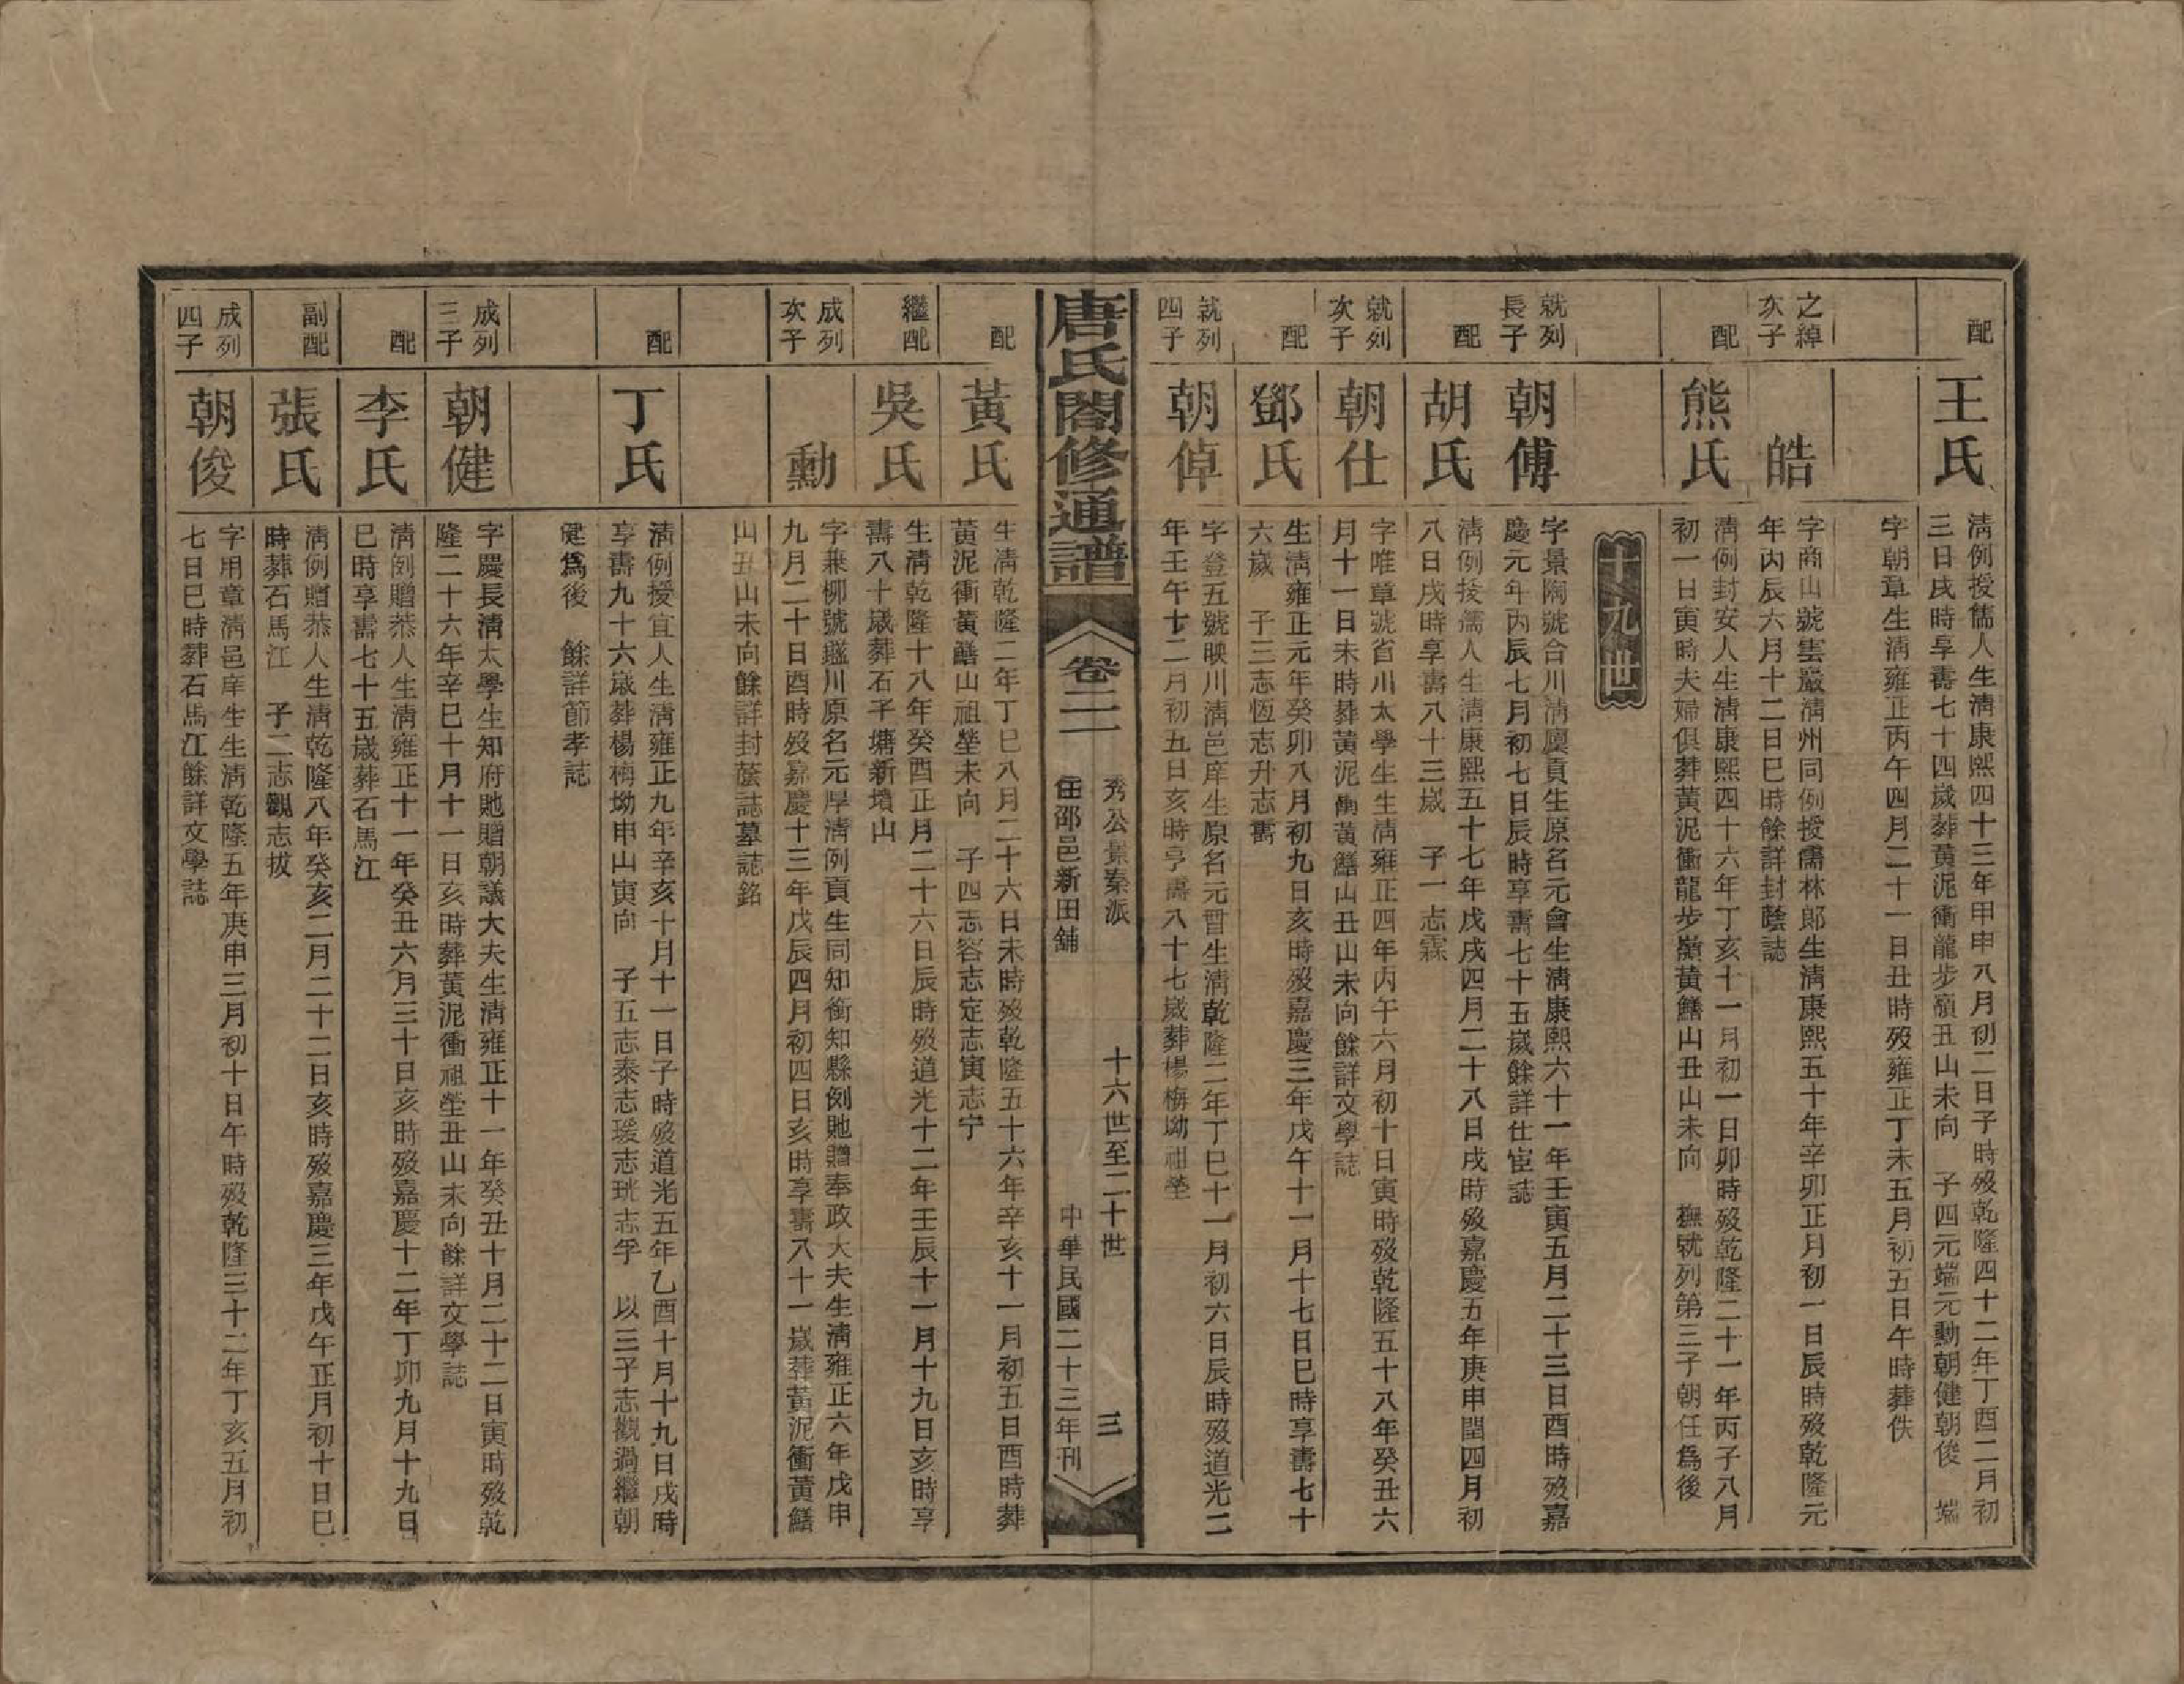 配
王氏
清例授儒人生清康熙四十三年甲申八月初二日子時歿乾隆四十二年丁酉二月初
三日戌時享壽七十四歲葬黃泥衝龍步嶺丑山未向　子四元端元勳朝健朝俊　端
字朝章生清雍正丙午四月二十一日丑時歿雍正丁未五月初五日午時葬佚
之綽
次子
皓
字商山號雲巖清州同例授儒林郎生清康熙五十年辛卯正月初一日辰時歿乾隆元
年丙辰六月十二日巳時餘詳封蔭誌
配
熊氏
清例封安人生清康熙四十六年丁亥十一月初一日卯時歿乾隆二十一年丙子八月
初一日寅時夫婦俱葬黃泥衝龍步嶺黃鱔山丑山未向　撫就列第三子朝任爲後
十九世
就列
長子
朝傅
字景陶號合川清廩貢生原名元會生清康熙六十一年壬寅五月二十三日酉時歿嘉
慶元年丙辰七月初七日辰時享壽七十五歲餘詳仕宦誌
配
胡氏
清例授孺人生清康熙五十七年戊戌四月二十八日戌時歿嘉慶五年庚申閏四月初
八日戌時享壽八十三歲　子一志霖
就列
次子
朝仕
字唯章號省川太學生生清雍正四年丙午六月初十日寅時歿乾隆五十八年癸丑六
月十一日未時葬黃泥衝黃鱔山丑山未向餘詳文學誌
配
鄧氏
生清雍正元年癸卯八月初九日亥時歿嘉慶三年戊午十一月十七日巳時享壽七十
六歲　子三志恆志升志壽
就列
四子
朝倬
字登五號映川清邑庠生原名元晋生清乾隆二年丁巳十一月初六日辰時歿道光二
年壬午十二月初五日亥時享壽八十七歲葬楊梅坳祖塋
唐氏閤修通譜
卷二二
秀公景秦派
住邵邑新田鋪
十六世至二十世
三
中華民國二十三年刊
配
黃氏
生清乾隆二年丁巳八月二十六日未時歿乾隆五十六年辛亥十一月初五日酉時葬
黃泥衝黃鱔山祖塋未向　子四志容志定志寅志宁
繼配
吳氏
生清乾隆十八年癸酉正月二十六日辰時歿道光十二年壬辰十一月十九日亥時享
壽八十歲葬石子塘新墳山
成列
次子
勳
字兼柳號蘊川原名元厚清例貢生同知銜知縣例貤贈奉政大夫生清雍正六年戊申
九月二十日酉時歿嘉慶十三年戊辰四月初四日亥時享壽八十一歲葬黃泥衝黃鱔
山丑山未向餘詳封蔭誌墓誌銘
配
丁氏
清例授宜人生清雍正九年辛亥十月十一日子時歿道光五年乙酉十月十九日戌時
享壽九十六歲葬楊梅坳申山寅向　子五志泰志瑗志珖志孚　以三子志觀過繼朝
健爲後　餘詳節孝誌
成列
三子
朝健
字慶長清太學生知府貤贈朝議大夫生清雍正十一年癸丑十月二十二日寅時歿乾
隆二十六年辛巳十月十一日亥時葬黃泥衝祖塋丑山未向餘詳文學誌
配
李氏
清例贈恭人生清雍正十一年癸丑六月三十日亥時歿嘉慶十二年丁卯九月十九日
巳時享壽七十五歲葬石馬江
副配
張氏
清例贈恭人生清乾隆八年癸亥二月二十二日亥時歿嘉慶三年戊午正月初十日巳
時葬石馬江　子二志觀志拔
成列
四子
朝俊
字用章清邑庠生生清乾隆五年庚申三月初十日午時歿乾隆三十二年丁亥五月初
七日巳時葬石馬江餘詳文學誌